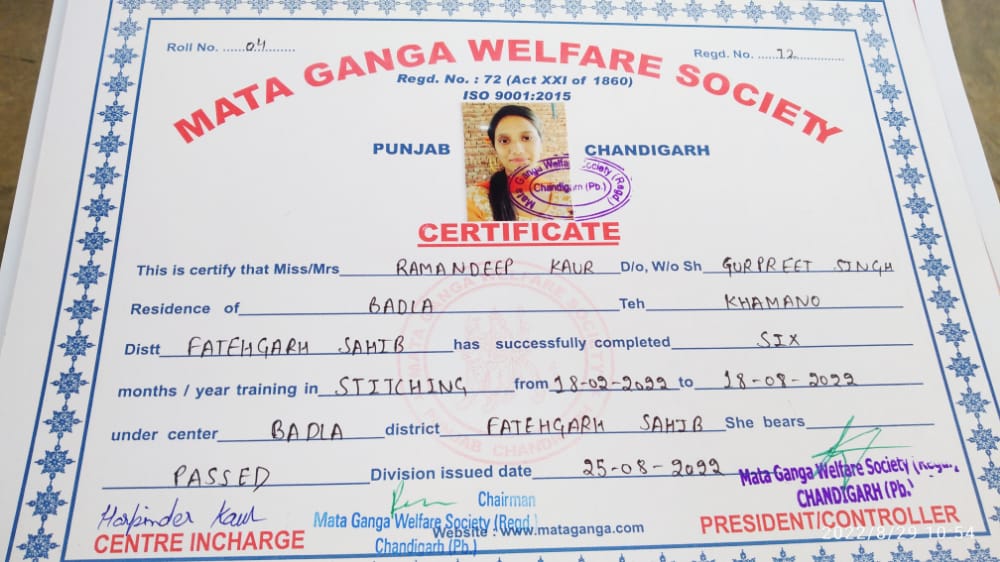 Roll No. ......04.........
Regd. No. ....72...............
MATA GANGA WELFARE SOCIETY
Regd. No. : 72 (Act XXI of 1860)
ISO 9001:2015
PUNJAB CHANDIGARH
Mata Ganga Welfare Society (Regd.)
Chandigarh (Pb.)
CERTIFICATE
This is certify that Miss/Mrs RAMANDEEP KAUR D/o, W/o Sh GURPREET SINGH
Residence of BADLA Teh KHAMANO
Distt FATEHGARH SAHIB has successfully completed SIX
months / year training in STITCHING from 18-02-2022 to 18-08-2022
under center BADLA district FATEHGARH SAHIB She bears
PASSED Division issued date 25-08-2022
MATA GANGA WELFARE SOCIETY
PUNJAB CHANDIGARH
Mata Ganga Welfare Society (Regd.)
CHANDIGARH (Pb.)
Harpinder Kaur
Chairman
Mata Ganga Welfare Society (Regd.)
Website : www.mataganga.com
Chandigarh (Pb.)
CENTRE INCHARGE
PRESIDENT/CONTROLLER
2022/8/29 10:54